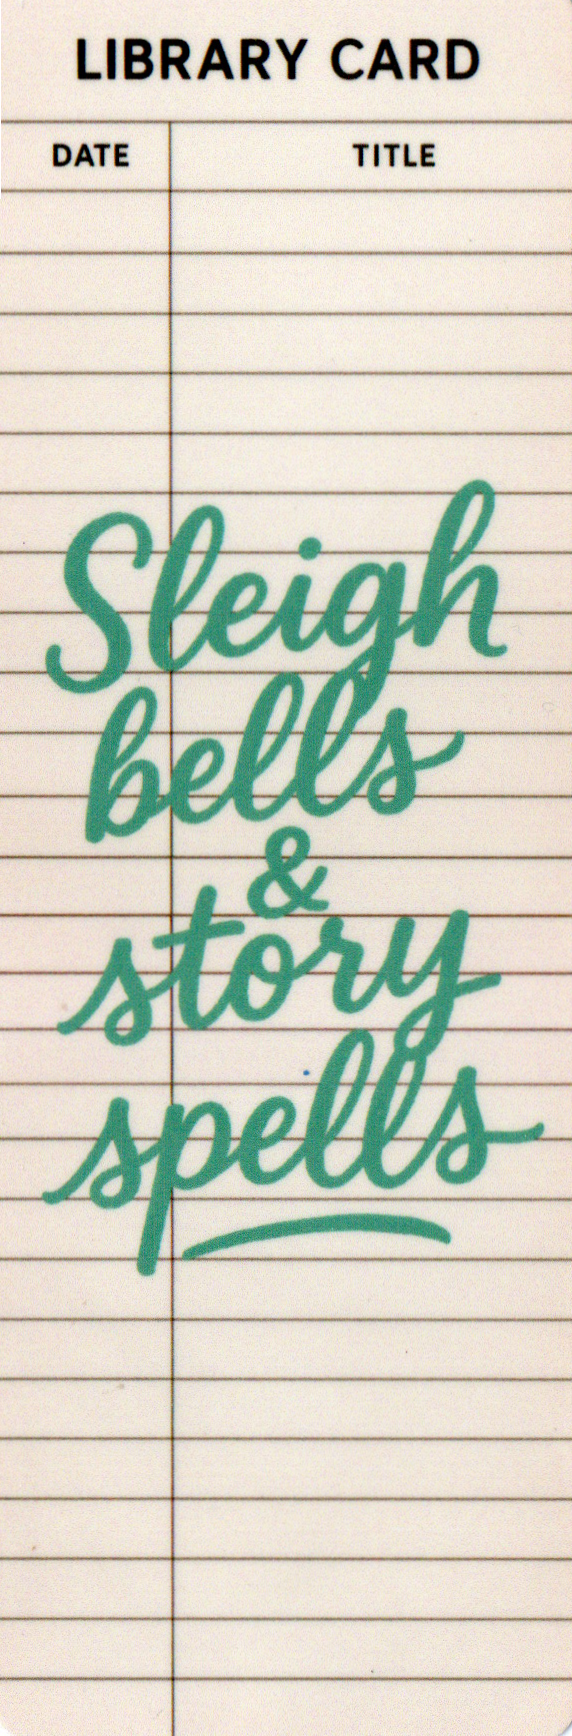 LIBRARY CARD
DATE TITLE
Sleigh
bells
&
story
spells